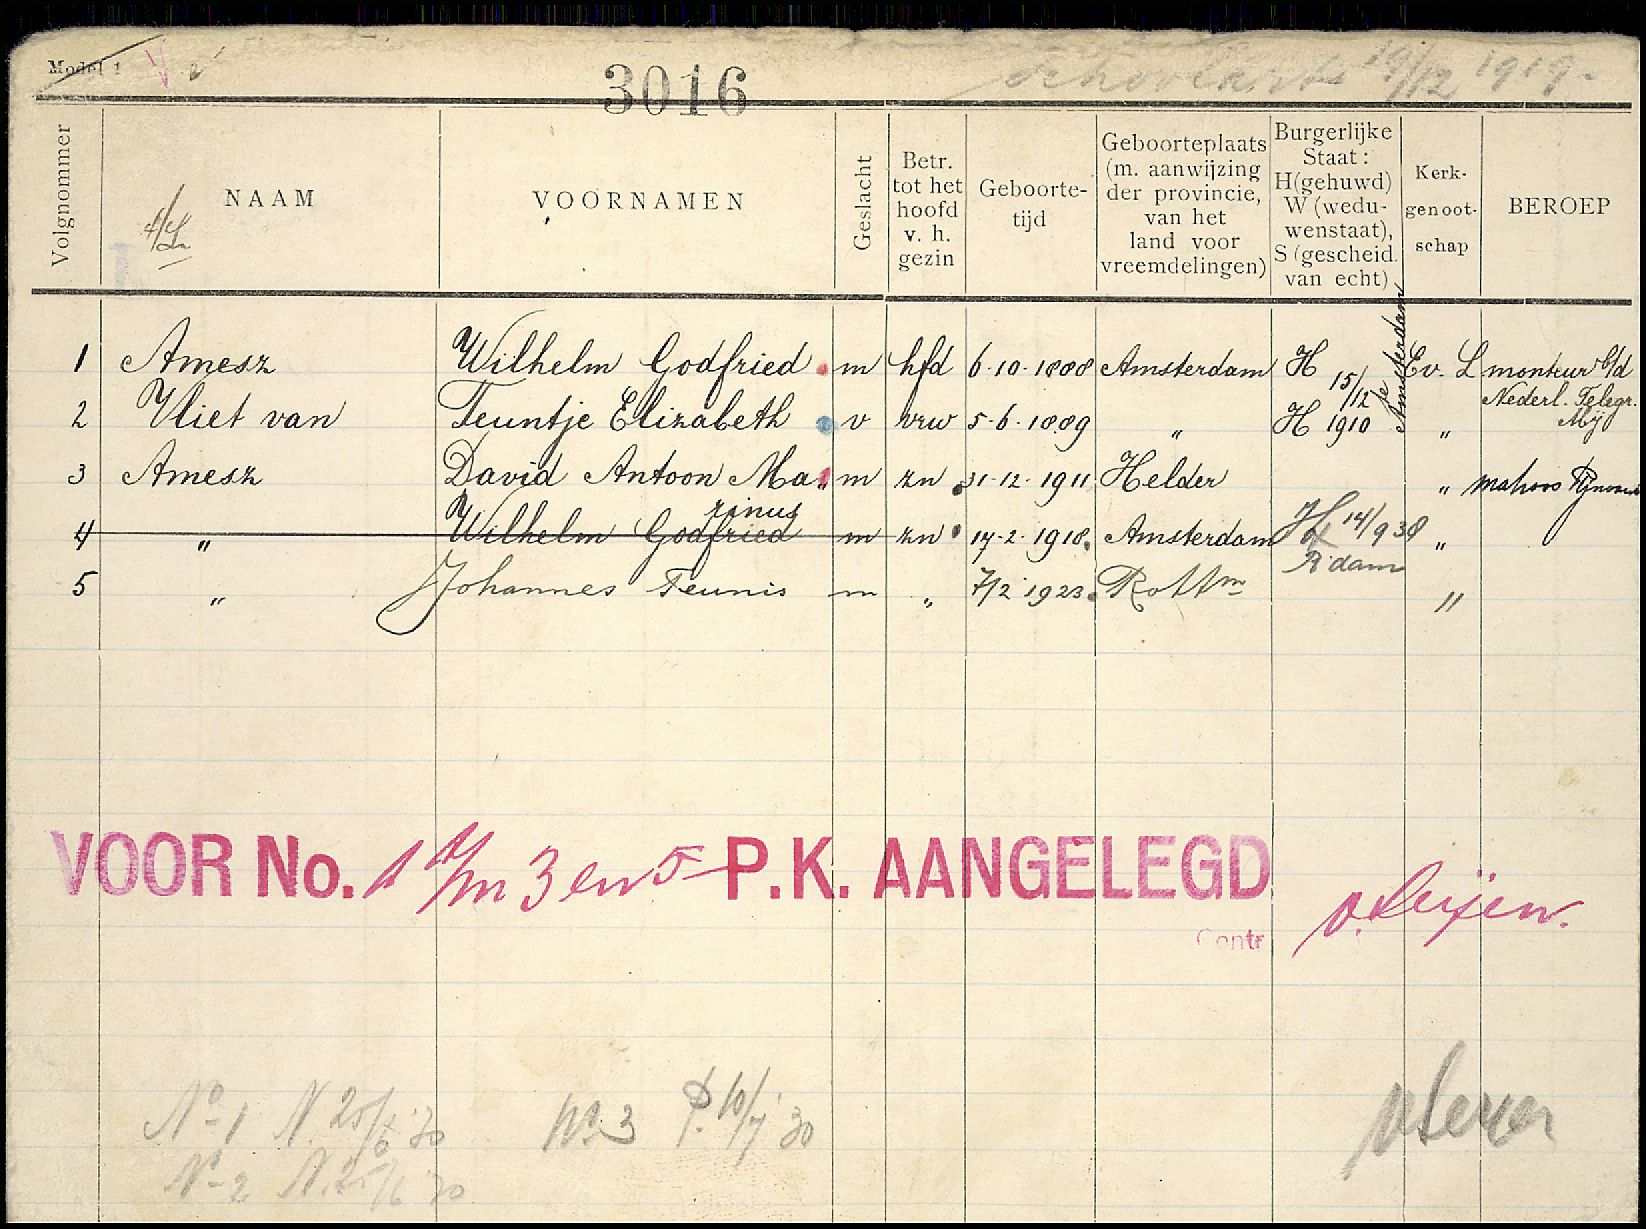 Model 1
3016
Schoolarts 19/12 1919.
Volgnommer
NAAM
VOORNAMEN
Geslacht
Betr. tot het hoofd v. h. gezin
Geboorte-tijd
Geboorteplaats (m. aanwijzing der provincie, van het land voor vreemdelingen)
Burgerlijke Staat: H (gehuwd) W (wedu-wenstaat), S (gescheid. van echt)
Kerk-genoot-schap
BEROEP
1 Amesz Wilhelm Godfried m hfd 6-10-1888 Amsterdam H 15/12 1910 te Amsterdam Ev. L monteur b/d Nederl. Telegr. Mij
2 Vliet van Teuntje Elizabeth v vrw 5-6-1889 " H "
3 Amesz David Antoon Marinus m zn 31-12-1911 Helder " matroos
4 " Wilhelm Godfried m zn 17-2-1918 Amsterdam H 14/9 38 R'dam "
5 " Johannes Teunis m " 7/2 1923 Rottm "
VOOR No. 1 t/m 3 en 5 P.K. AANGELEGD
Contr
No 1 N. 25/6 '30
No 3 P. 10/7 '30
No 2 N. 25/6 '30